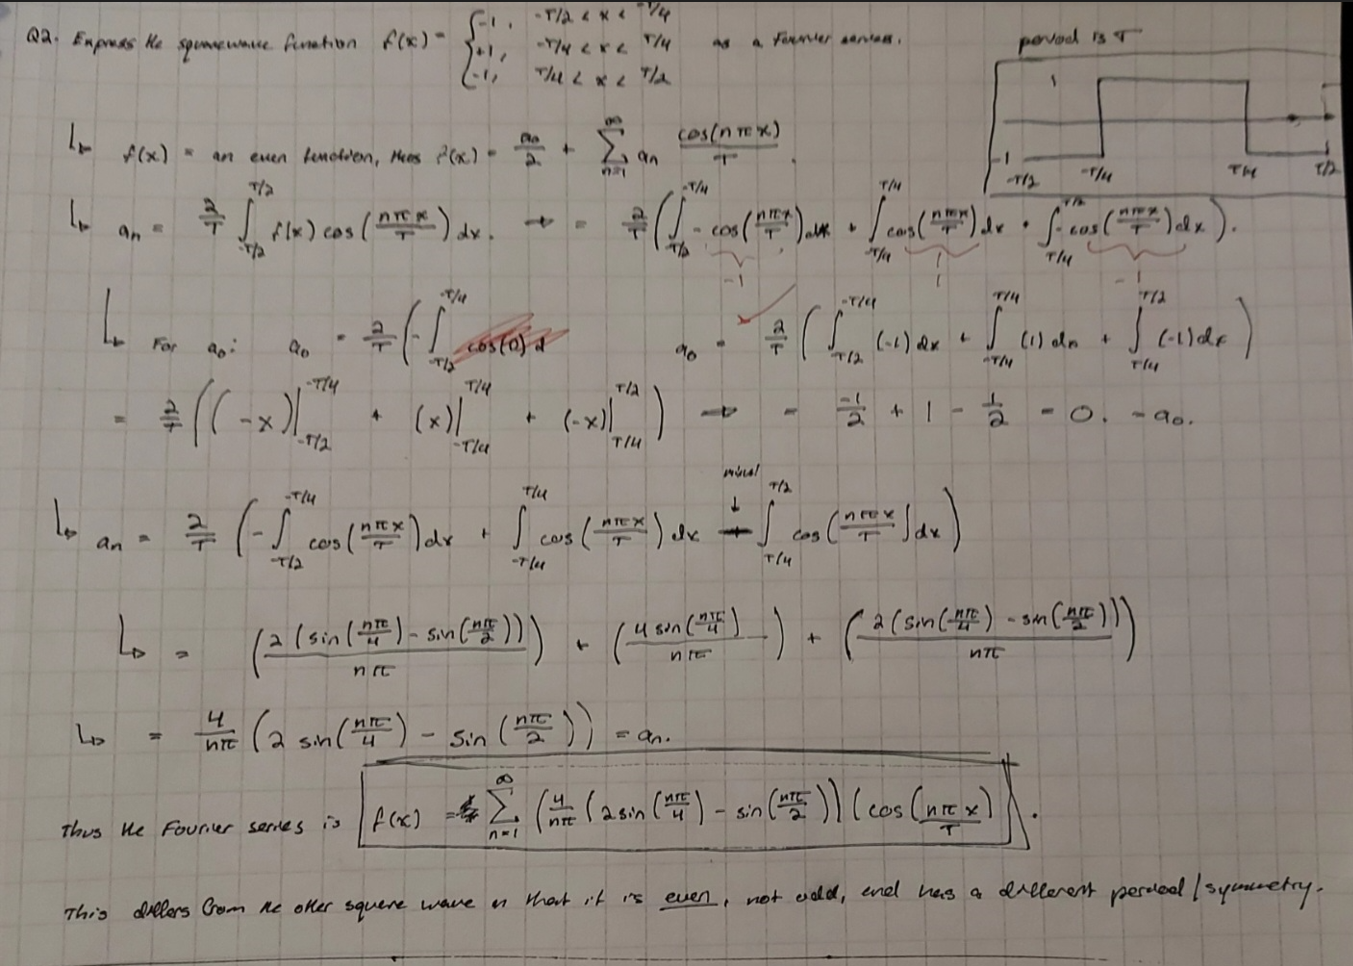 Q2. Express the squarewave function f(x) = { -1, -T/2 < x < -T/4
+1, -T/4 < x < T/4 as a Fourier series.
-1, T/4 < x < T/2
period is T
1
-1 -T/2 -T/4 T/4 T/2
↳ f(x) = an even function, thus f(x) = a₀/2 + ∑_{n=1}^{∞} aₙ cos(nπx)/T.
↳ aₙ = 2/T ∫_{-T/2}^{T/2} f(x) cos(nπx/T) dx. → = 2/T (∫_{-T/2}^{-T/4} - cos(nπx/T) dx + ∫_{-T/4}^{T/4} cos(nπx/T) dx + ∫_{T/4}^{T/2} - cos(nπx/T) dx).
-1 1 -1
↳ For a₀: a₀ = 2/T (-∫_{-T/2}^{-T/4} cos(0) d a₀ = 2/T (∫_{-T/2}^{-T/4} (-1) dx + ∫_{-T/4}^{T/4} (1) dx + ∫_{T/4}^{T/2} (-1) dx)
= 2/T ((-x)|_{-T/2}^{-T/4} + (x)|_{-T/4}^{T/4} + (-x)|_{T/4}^{T/2}) → = -1/2 + 1 - 1/2 = 0. = a₀.
minus! ↓
↳ aₙ = 2/T (-∫_{-T/2}^{-T/4} cos(nπx/T) dx + ∫_{-T/4}^{T/4} cos(nπx/T) dx - ∫_{T/4}^{T/2} cos(nπx/T) dx)
↳ = (2(sin(nπ/4) - sin(nπ/2))/nπ) + (4 sin(nπ/4)/nπ) + (2(sin(nπ/4) - sin(nπ/2))/nπ)
↳ = 4/nπ (2 sin(nπ/4) - sin(nπ/2)) = aₙ.
Thus the Fourier series is f(x) = ∑_{n=1}^{∞} (4/nπ (2 sin(nπ/4) - sin(nπ/2))) (cos(nπx/T)).
This differs from the other square wave in that it is even, not odd, and has a different period/symmetry.